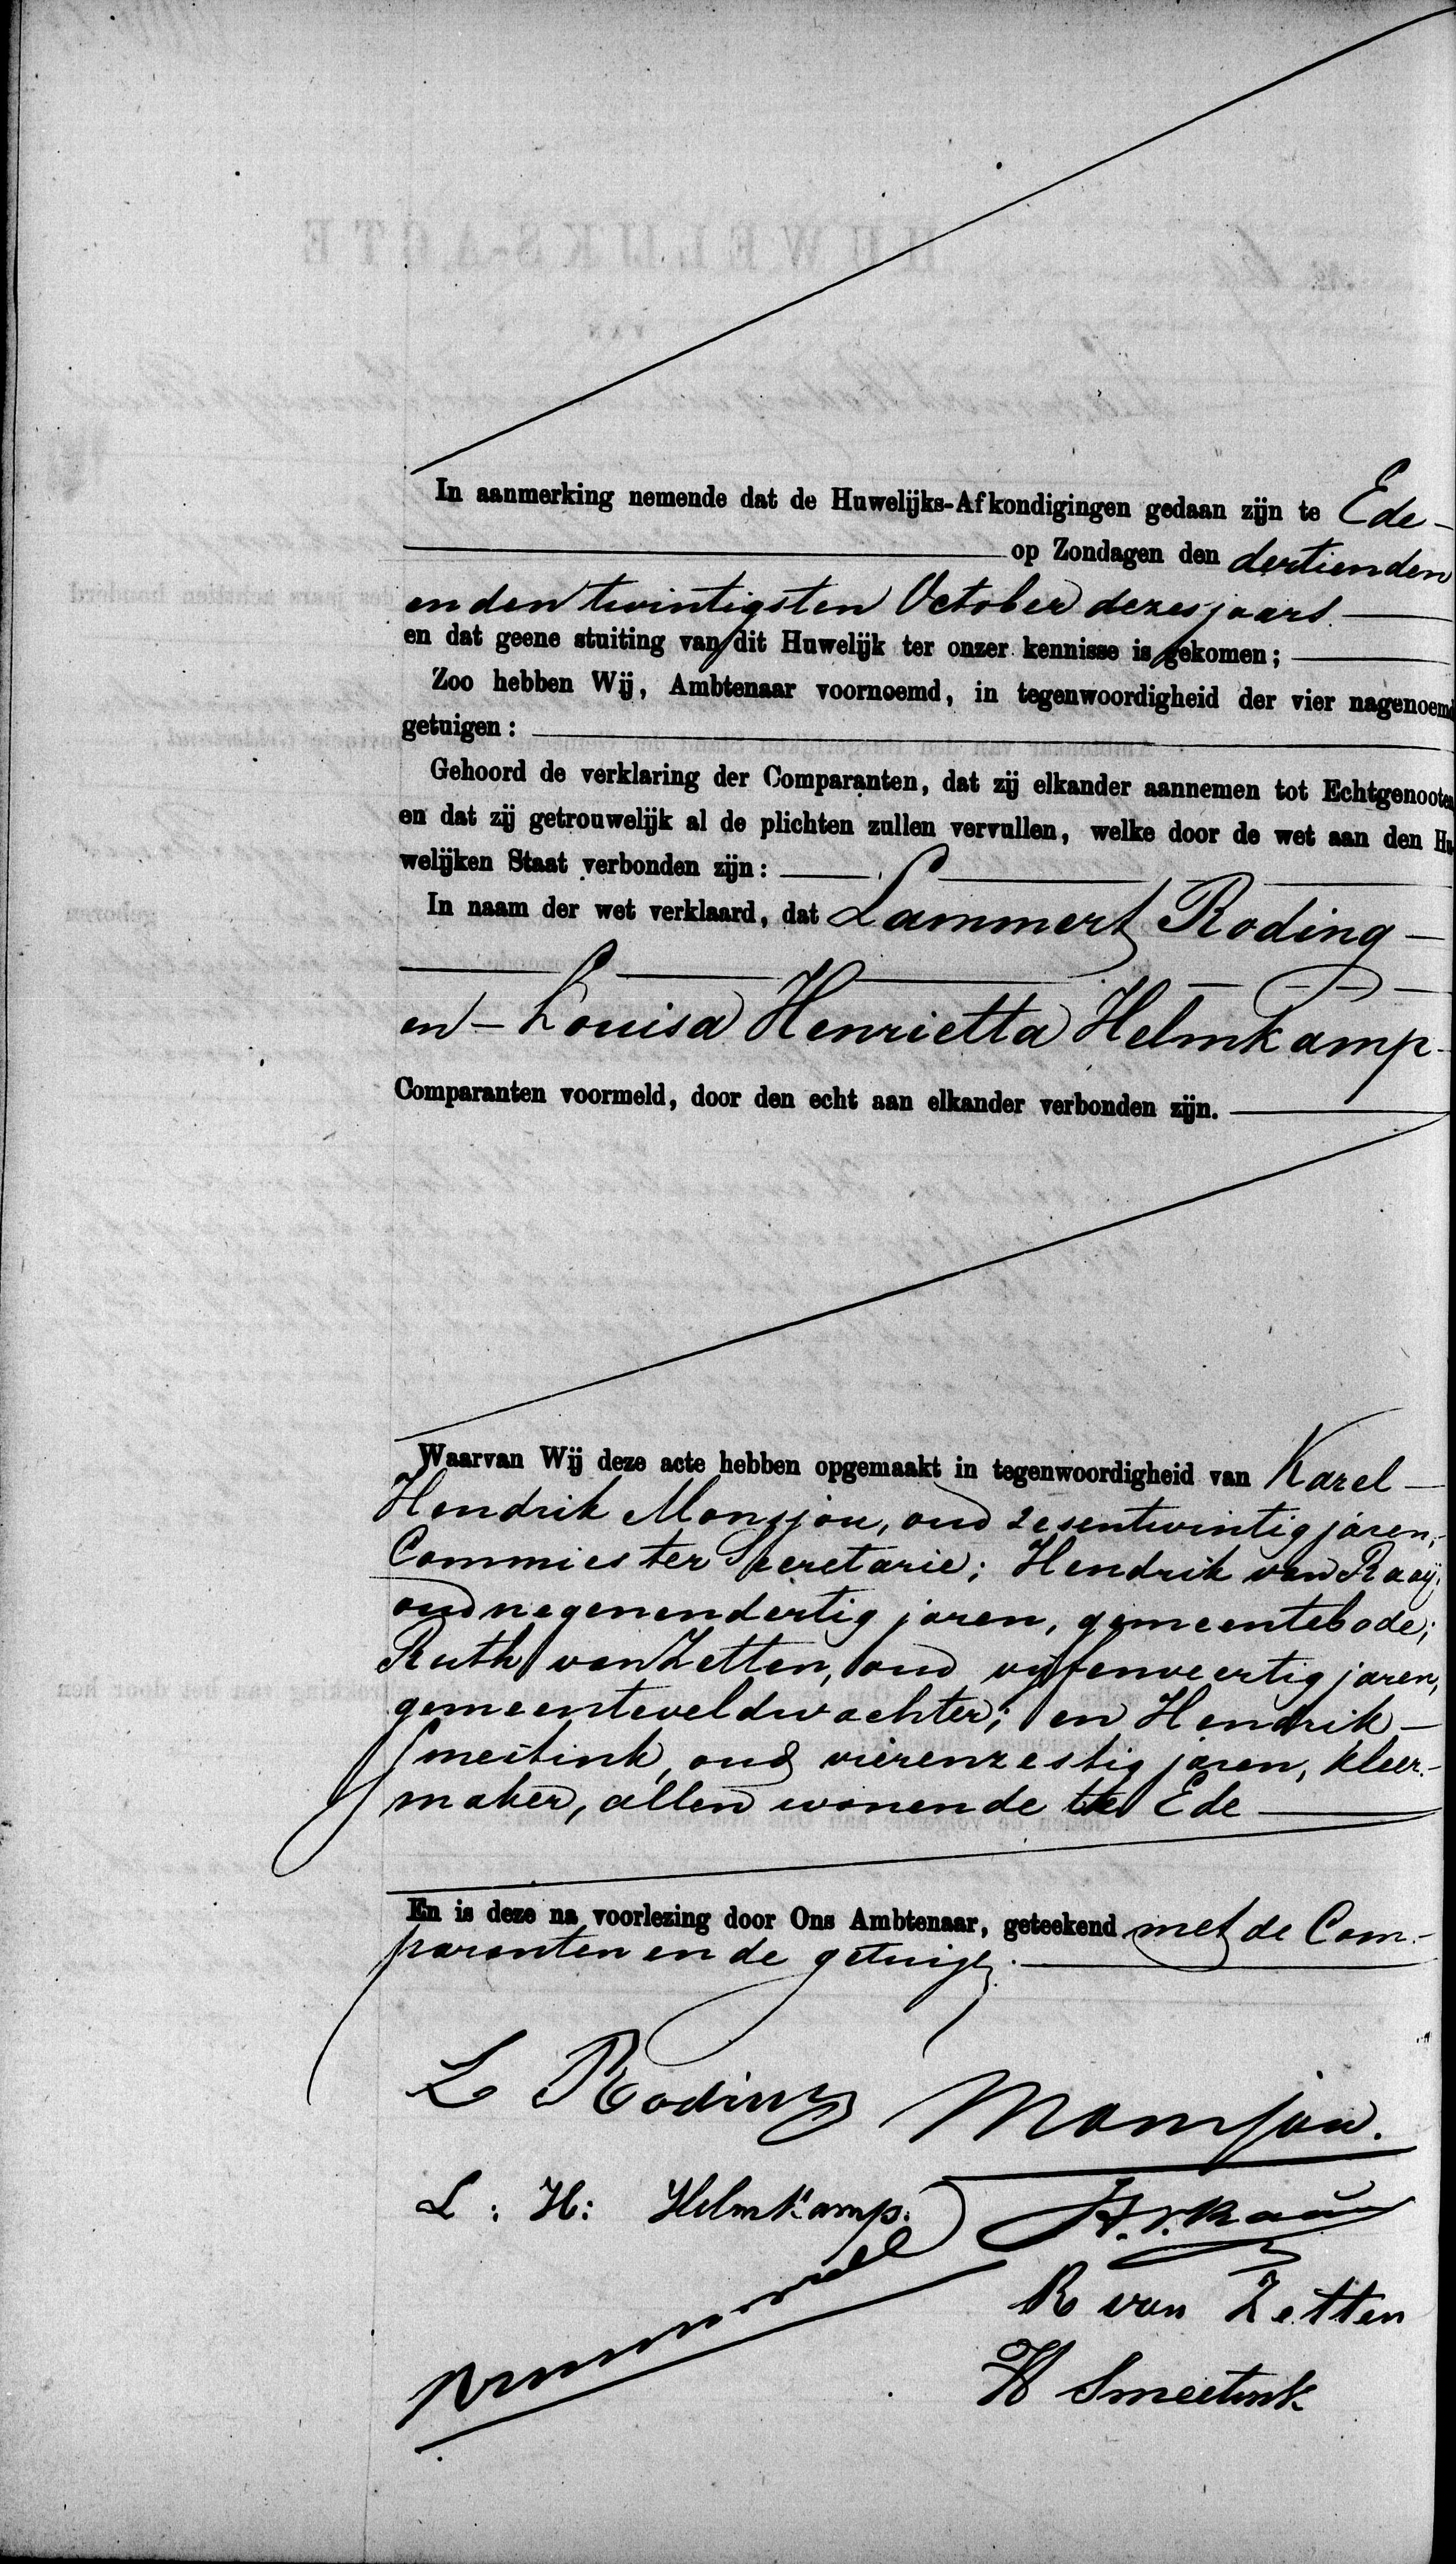 In aanmerking nemende dat de Huwelijks-Afkondigingen gedaan zijn te Ede
op Zondagen den dertienden
en den twintigsten October dezes jaars
en dat geene stuiting van dit Huwelijk ter onzer kennisse is gekomen;
Zoo hebben Wij, Ambtenaar voornoemd, in tegenwoordigheid der vier nagenoemd
getuigen:
Gehoord de verklaring der Comparanten, dat zij elkander aannemen tot Echtgenooten
en dat zij getrouwelijk al de plichten zullen vervullen, welke door de wet aan den Hu-
welijken Staat verbonden zijn:
In naam der wet verklaard, dat Lammert Roding
en Louisa Henrietta Helmkamp
Comparanten voormeld, door den echt aan elkander verbonden zijn.
Waarvan Wij deze acte hebben opgemaakt in tegenwoordigheid van Karel
Hendrik Monsjou, oud zesentwintig jaren,
Commies ter Secretarie; Hendrik van Raaij,
oud negenendertig jaren, gemeentebode;
Ruth van Zetten, oud vijfenveertig jaren,
gemeenteveldwachter; en Hendrik
Smeitink, oud vierenzestig jaren, kleer-
maker, allen wonende te Ede
En is deze na voorlezing door Ons Ambtenaar, geteekend met de Com-
paranten en de getuigen.
L Roding Monsjou.
L: H: Helmkamp. H. v. Raaij
R van Zetten
H Smeetink